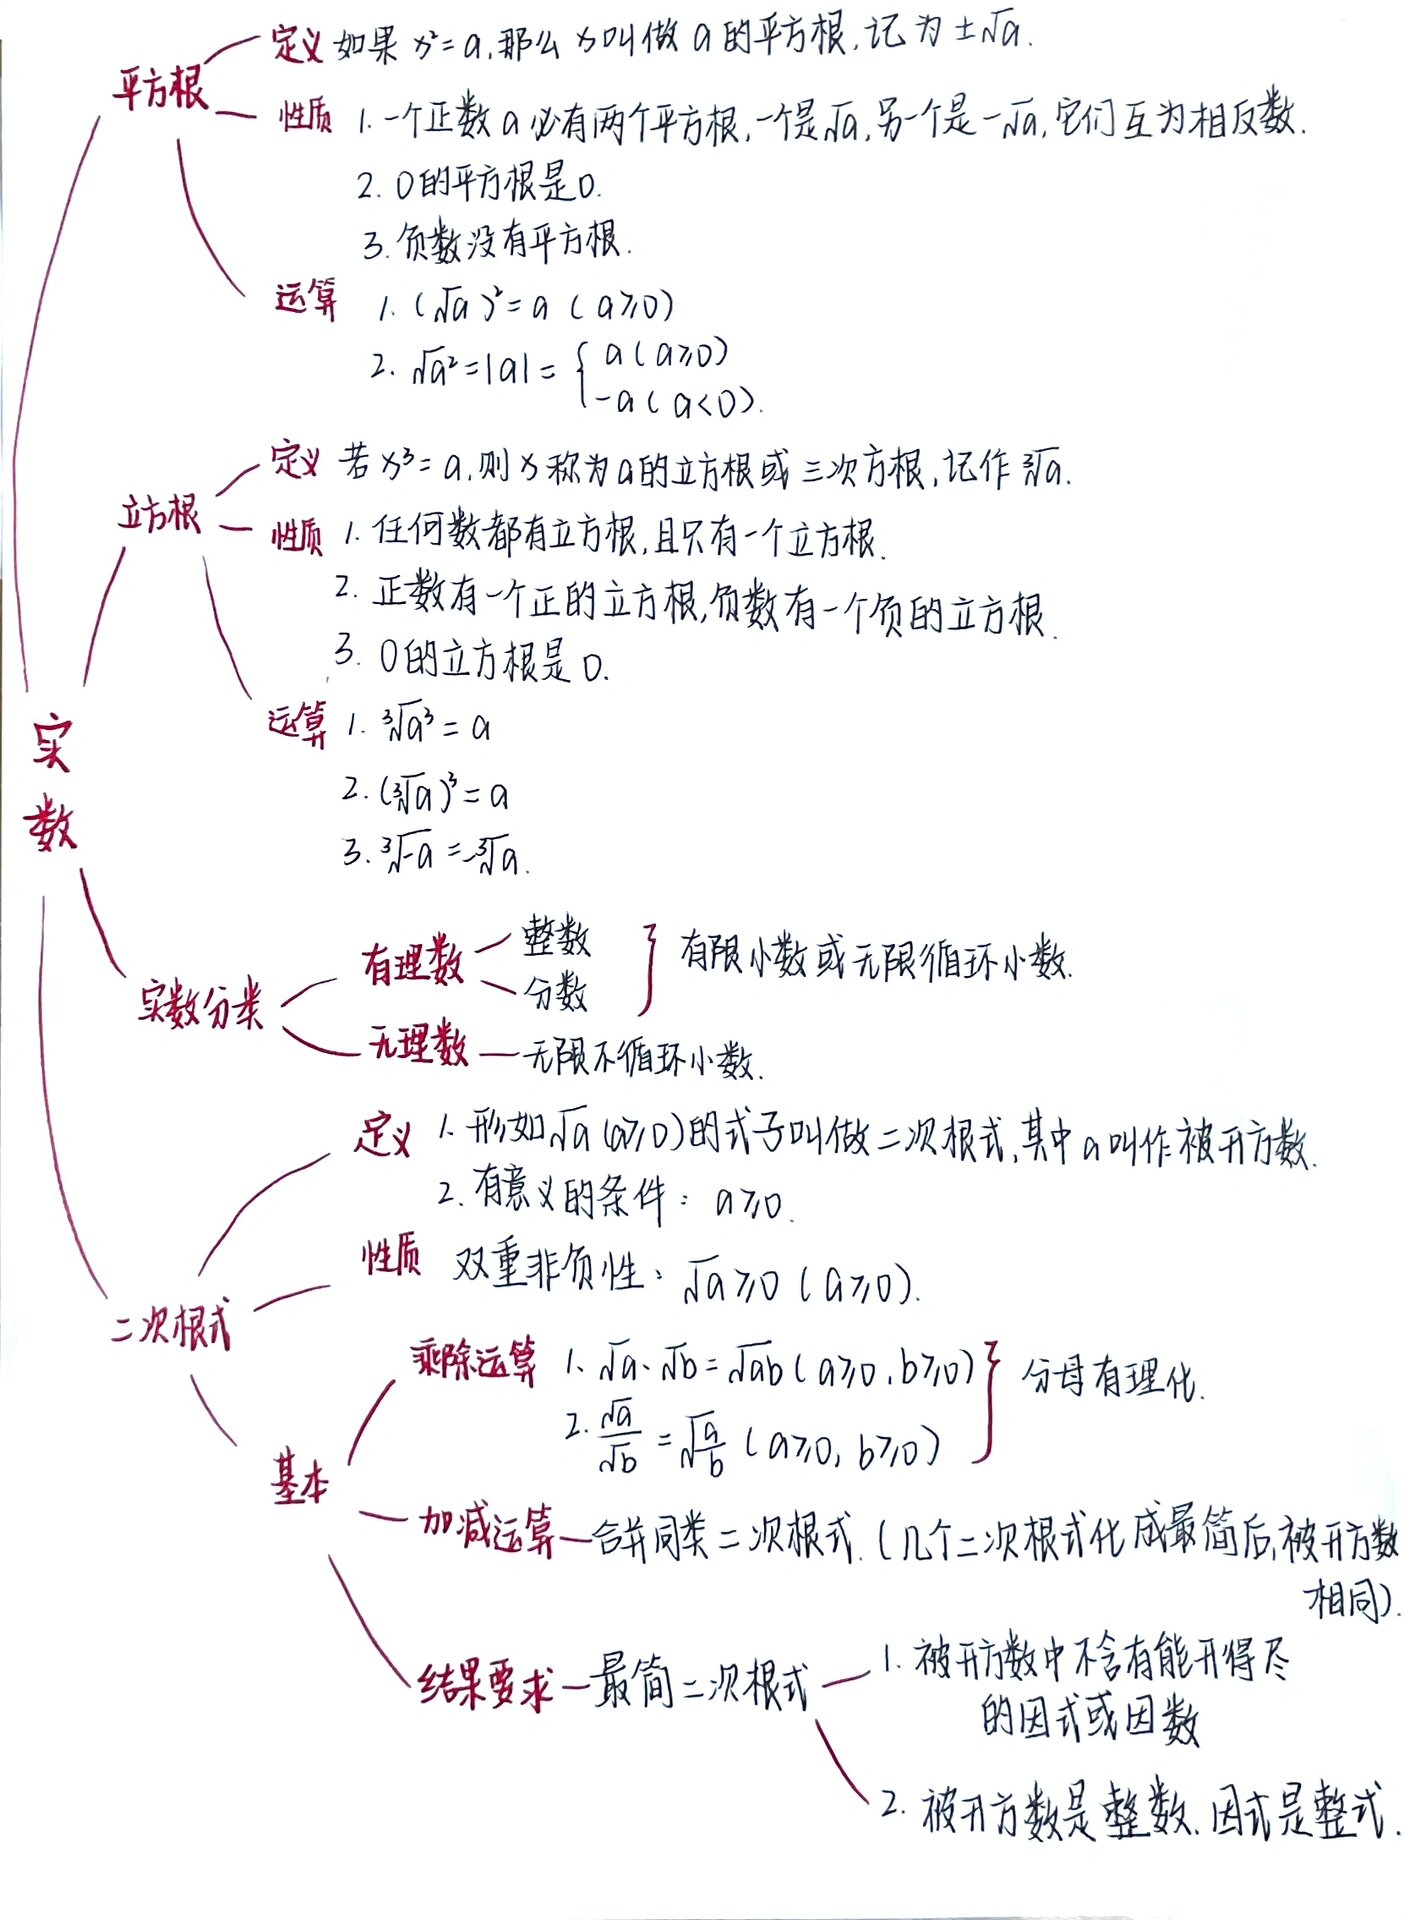 实数
平方根
定义 如果x²=a,那么x叫做a的平方根,记为±√a.
性质 1.一个正数a必有两个平方根,一个是√a,另一个是-√a,它们互为相反数.
2. 0的平方根是0.
3. 负数没有平方根.
运算 1. (√a)²=a (a≥0)
2. √a²=|a|={ a(a≥0)
-a(a<0).
立方根
定义 若x³=a,则x称为a的立方根或三次方根,记作³√a.
性质 1. 任何数都有立方根,且只有一个立方根.
2. 正数有一个正的立方根,负数有一个负的立方根.
3. 0的立方根是0.
运算 1. ³√a³=a
2. (³√a)³=a
3. ³√-a=-³√a.
实数分类
有理数 整数
分数
} 有限小数或无限循环小数.
无理数 — 无限不循环小数.
二次根式
定义 1. 形如√a(a≥0)的式子叫做二次根式,其中a叫作被开方数.
2. 有意义的条件: a≥0.
性质 双重非负性: √a≥0 (a≥0).
基本
乘除运算 1、√a·√b=√ab(a≥0,b≥0)
2. √a/√b=√(a/b) (a≥0, b≥0)
} 分母有理化.
加减运算—合并同类二次根式.(几个二次根式化成最简后,被开方数
相同).
结果要求—最简二次根式
1. 被开方数中不含有能开得尽
的因式或因数
2. 被开方数是整数、因式是整式.